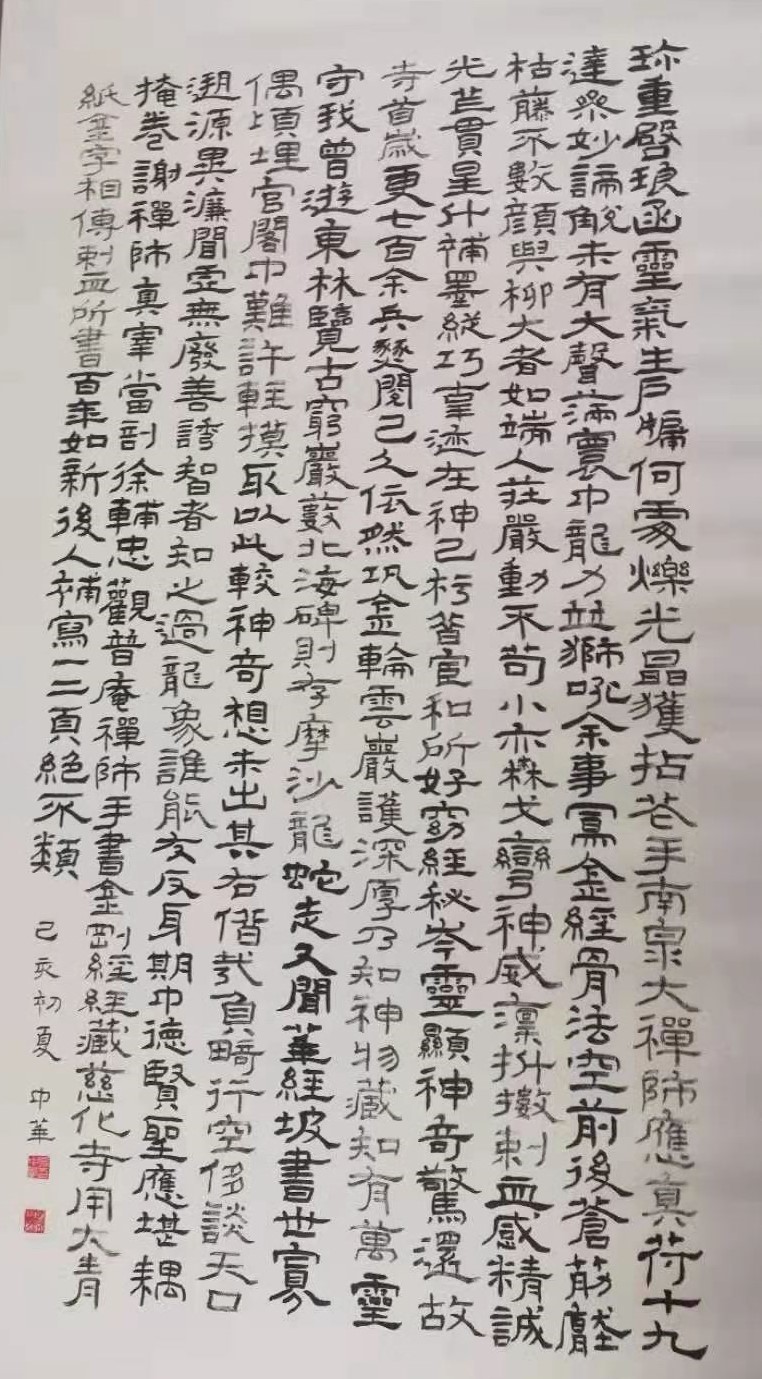 珍重啓琅函靈氣生户牖何處爍光晶獲拈花手南泉大禪師應真符十九
達参妙諦觧未有大聲滿寰中龍力並獅吼余事冩金經骨法空前後蒼筋
枯藤不數顔與柳大者如端人莊嚴動不苟小亦森戈彎神威凛抖擻刺血感精誠
光芒貫星斗補墨縱巧辜迹在神已朽昔宣和所好竊經秘岑靈顯神奇驚還故
寺首歲更七百余兵燹閱已久依然巩金輪雲巖護深厚乃知神物藏知有萬靈
守我曾遊東林覽古窮巖藪北海碑則存摩沙龍蛇走又聞華經坡書世寡
偶項埋官閣中難許輕摸取以此較神奇想未出其右偕哉負畸行空侈談天口
遡源異濂聞虚無廢善誇智者知之過龍象誰能友反身期中德賢聖應堪耦
掩卷謝禪師真宰當剖徐輔忠觀普庵禪師手書金剛經經藏慈化寺用太青
紙金字相傳刺血所書百年如新後人補寫一二頁絕不類
己亥初夏 中華